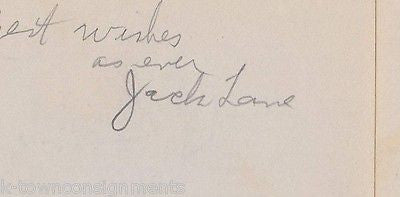 est wishes
as ever
Jack Lane
k-townconsignments